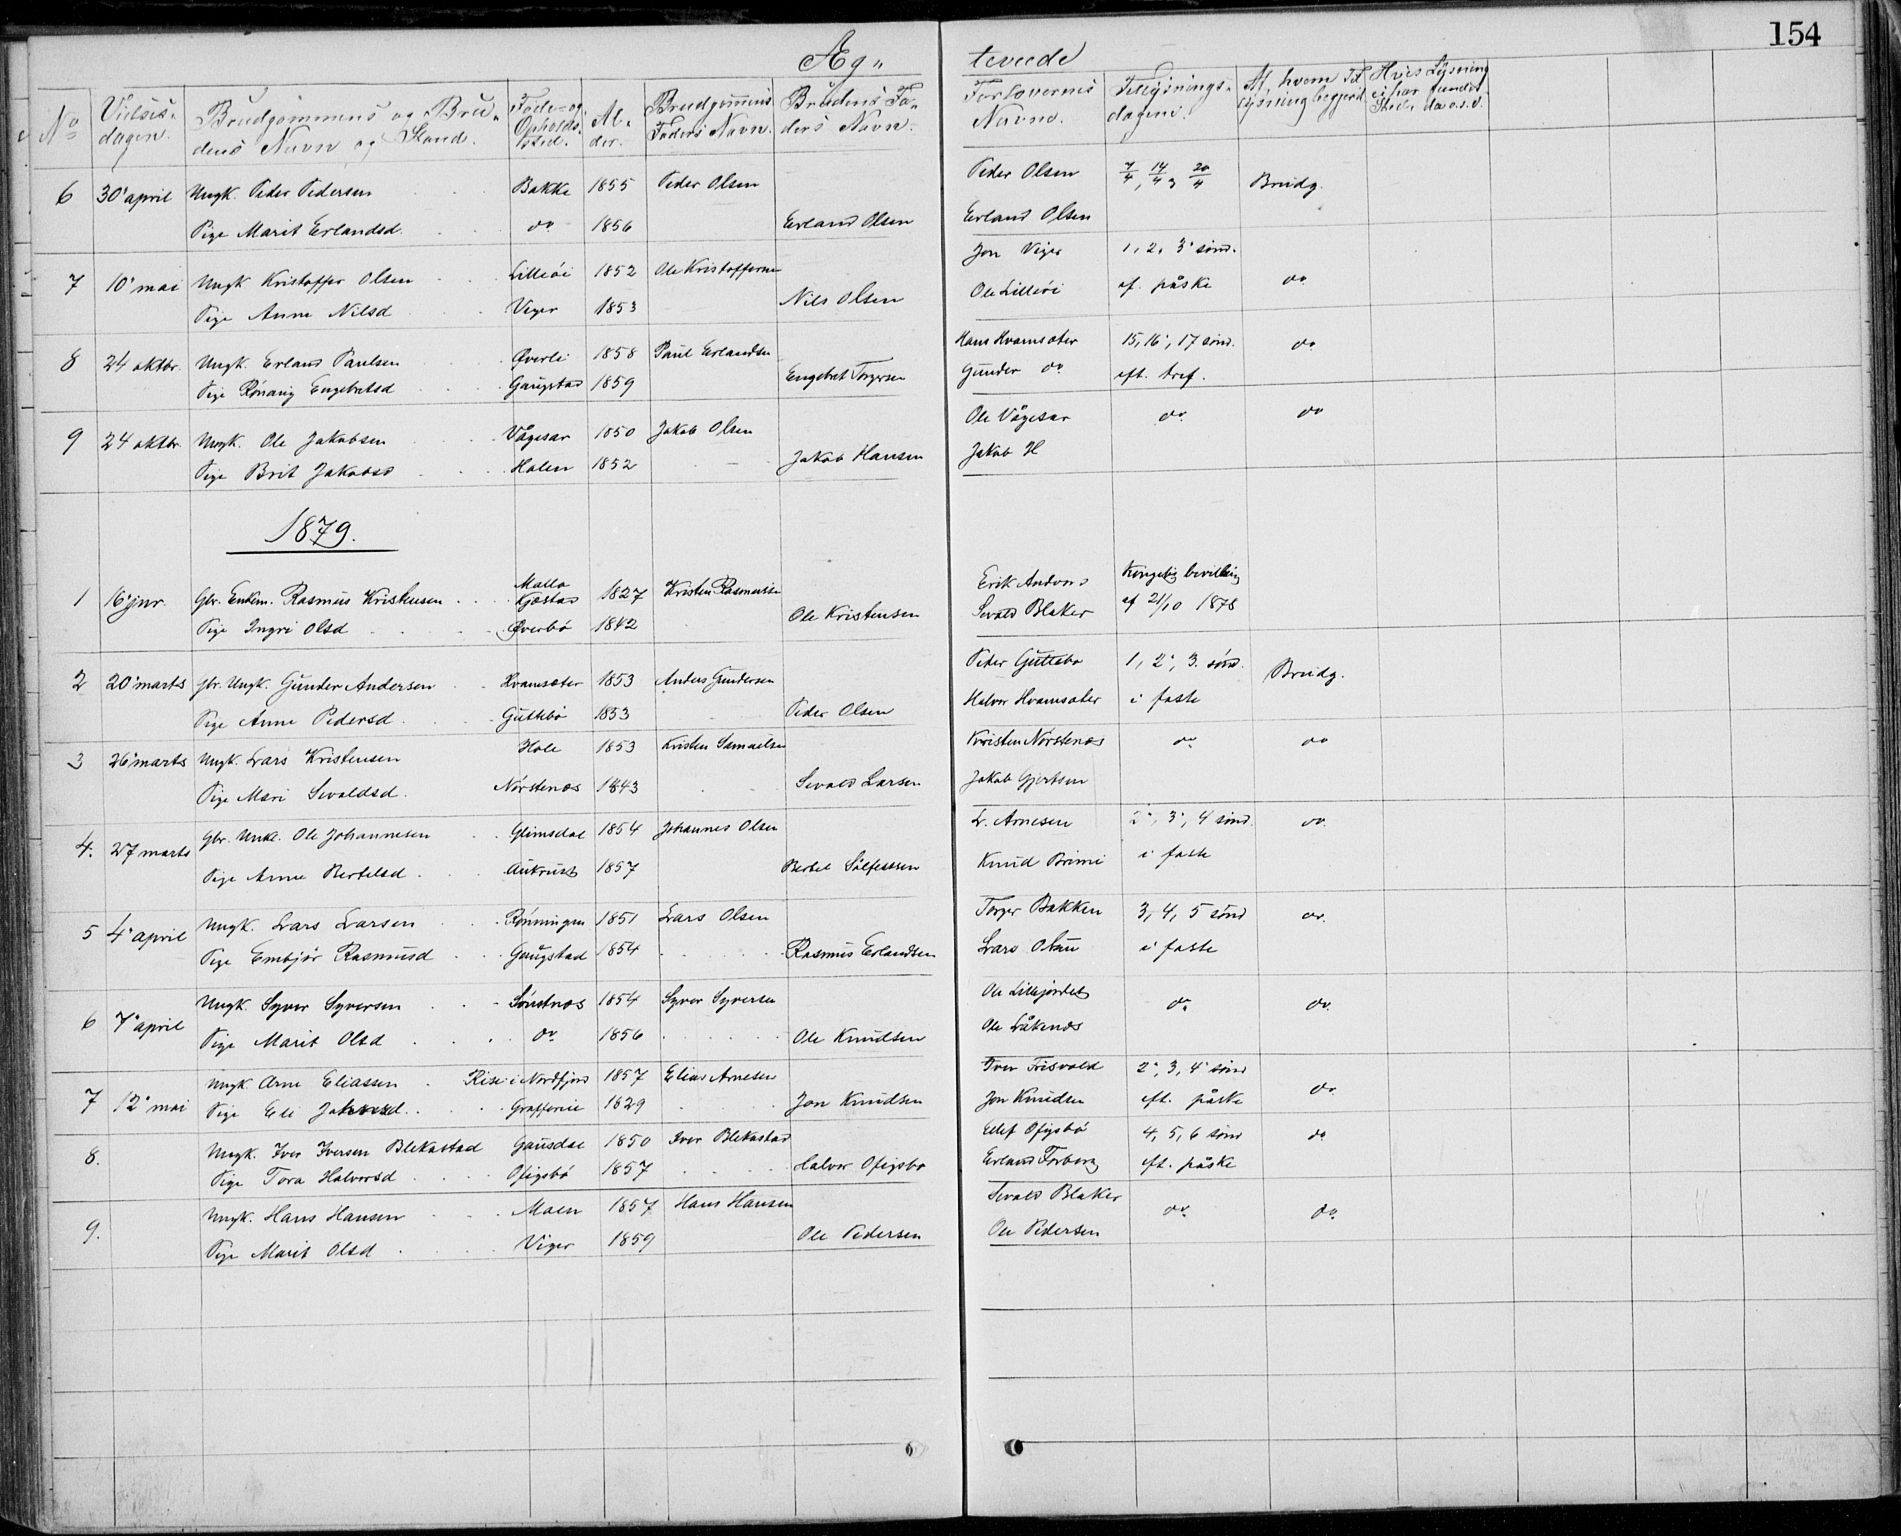 154
Æg" teviede
No Vielsesdagen. Brudgommens og Brudens Navn og Stand. Føde- og Opholdssted. Alder. Brudgommens Faders Navn. Brudens Faders Navn. Forlovernes Navne. Tillysningsdagene. Af hvem Tillysning begjert. Hvis Lysning ei har fundet Sted, da o.s.v.
6 30' april Ungk. Peder Pedersen Bakke 1855 Peder Olsen Peder Olsen 7/4, 14/4, 20/4 Brudg.
Pige Marit Erlandsd. do 1856 Erland Olsen Erland Olsen
7 10' mai Ungk Kristoffer Olsen Lilleøi 1852 Ole Kristoffersen Jon Viger 1, 2, 3' sønd.
Pige Anne Nilsd Viger 1853 Nils Olsen Ole Lilleøi ef. påske do
8 24 oktbr. Ungk. Erland Paulsen Øverli 1858 Paul Erlandsen Hans Hvamsæter 15, 16', 17 sønd. do
Pige Rønaug Engebretsd Gaugstad 1859 Engebret Torgersen Gunder do eft. tref.
9 24 oktbr. Ungk. Ole Jakobsen Vågesar 1850 Jakob Olsen Ole Vågesar do do
Pige Brit Jakobsd Holen 1852 Jakob Hansen Jakob H
1879.
1 16' jnr. Gbr. Enkem. Rasmus Kristensen Kjæstad 1827 Kristen Rasmussen Erik Andvord Kongelig bevilling
Pige Ingri Olsd Øverbø 1842 Ole Kristensen Sevald Blaker af 21/10 1878
2 20' marts gbr. Ungk. Gunder Andersen Hvamsæter 1853 Anders Gundersen Peder Guttebø 1, 2', 3. sønd. Brudg.
Pige Anne Pedersd. Guttebø 1853 Peder Olsen Halvor Hvamsæter i faste
3 26' marts Ungk. Lars Kristensen Hole 1853 Kristen Samuelsen Kristen Nørstenæs do do
Pige Mari Sevaldsd. Nørstenæs 1843 Sevald Larsen Jakob Gjertsen
4. 27 marts Gbr. Unke. Ole Johannesen Glimsdal 1854 Johannes Olsen L. Arnesen 2', 3', 4 sønd. do.
Pige Anne Bertelsd. Aukrust 1857 Bertel Sølfestsen Knud Brimi i faste
5 4' april Ungk. Lars Larsen Rønningen 1851 Lars Olsen Torger Bakken 3, 4, 5 sønd do.
Pige Embjør Rasmusd Gaugstad 1854 Rasmus Erlandsen Lars Olsen i faste
6 7' april Ungk. Syver Syversen Sønstnæs 1854 Syver Syversen Ole Lillejordet do do.
Pige Marit Olsd do 1856 Ole Knudsen Ole Låkenæs
7 12' mai Ungk. Arne Eliassen Rise i Nordfjord 1857 Elias Arnesen Iver Trisvold 2', 3, 4' sønd
Pige Eli Jonsd. Grafferlie 1829 Jon Knudsen Jon Knudsen eft. påske do
8. Ungk. Iver Iversen Blekastad Gausdal 1850 Iver Blekastad Ellef Ofigsbø 4, 5, 6 sønd do
Pige Tora Halvorsd Ofigsbø 1857 Halvor Ofigsbø Erland Forberg eft. påske
9. Ungk. Hans Hansen Moen 1857 Hans Hansen Sevald Blaker do do
Pige Marit Olsd Viger 1859 Ole Pedersen Ole Pedersen